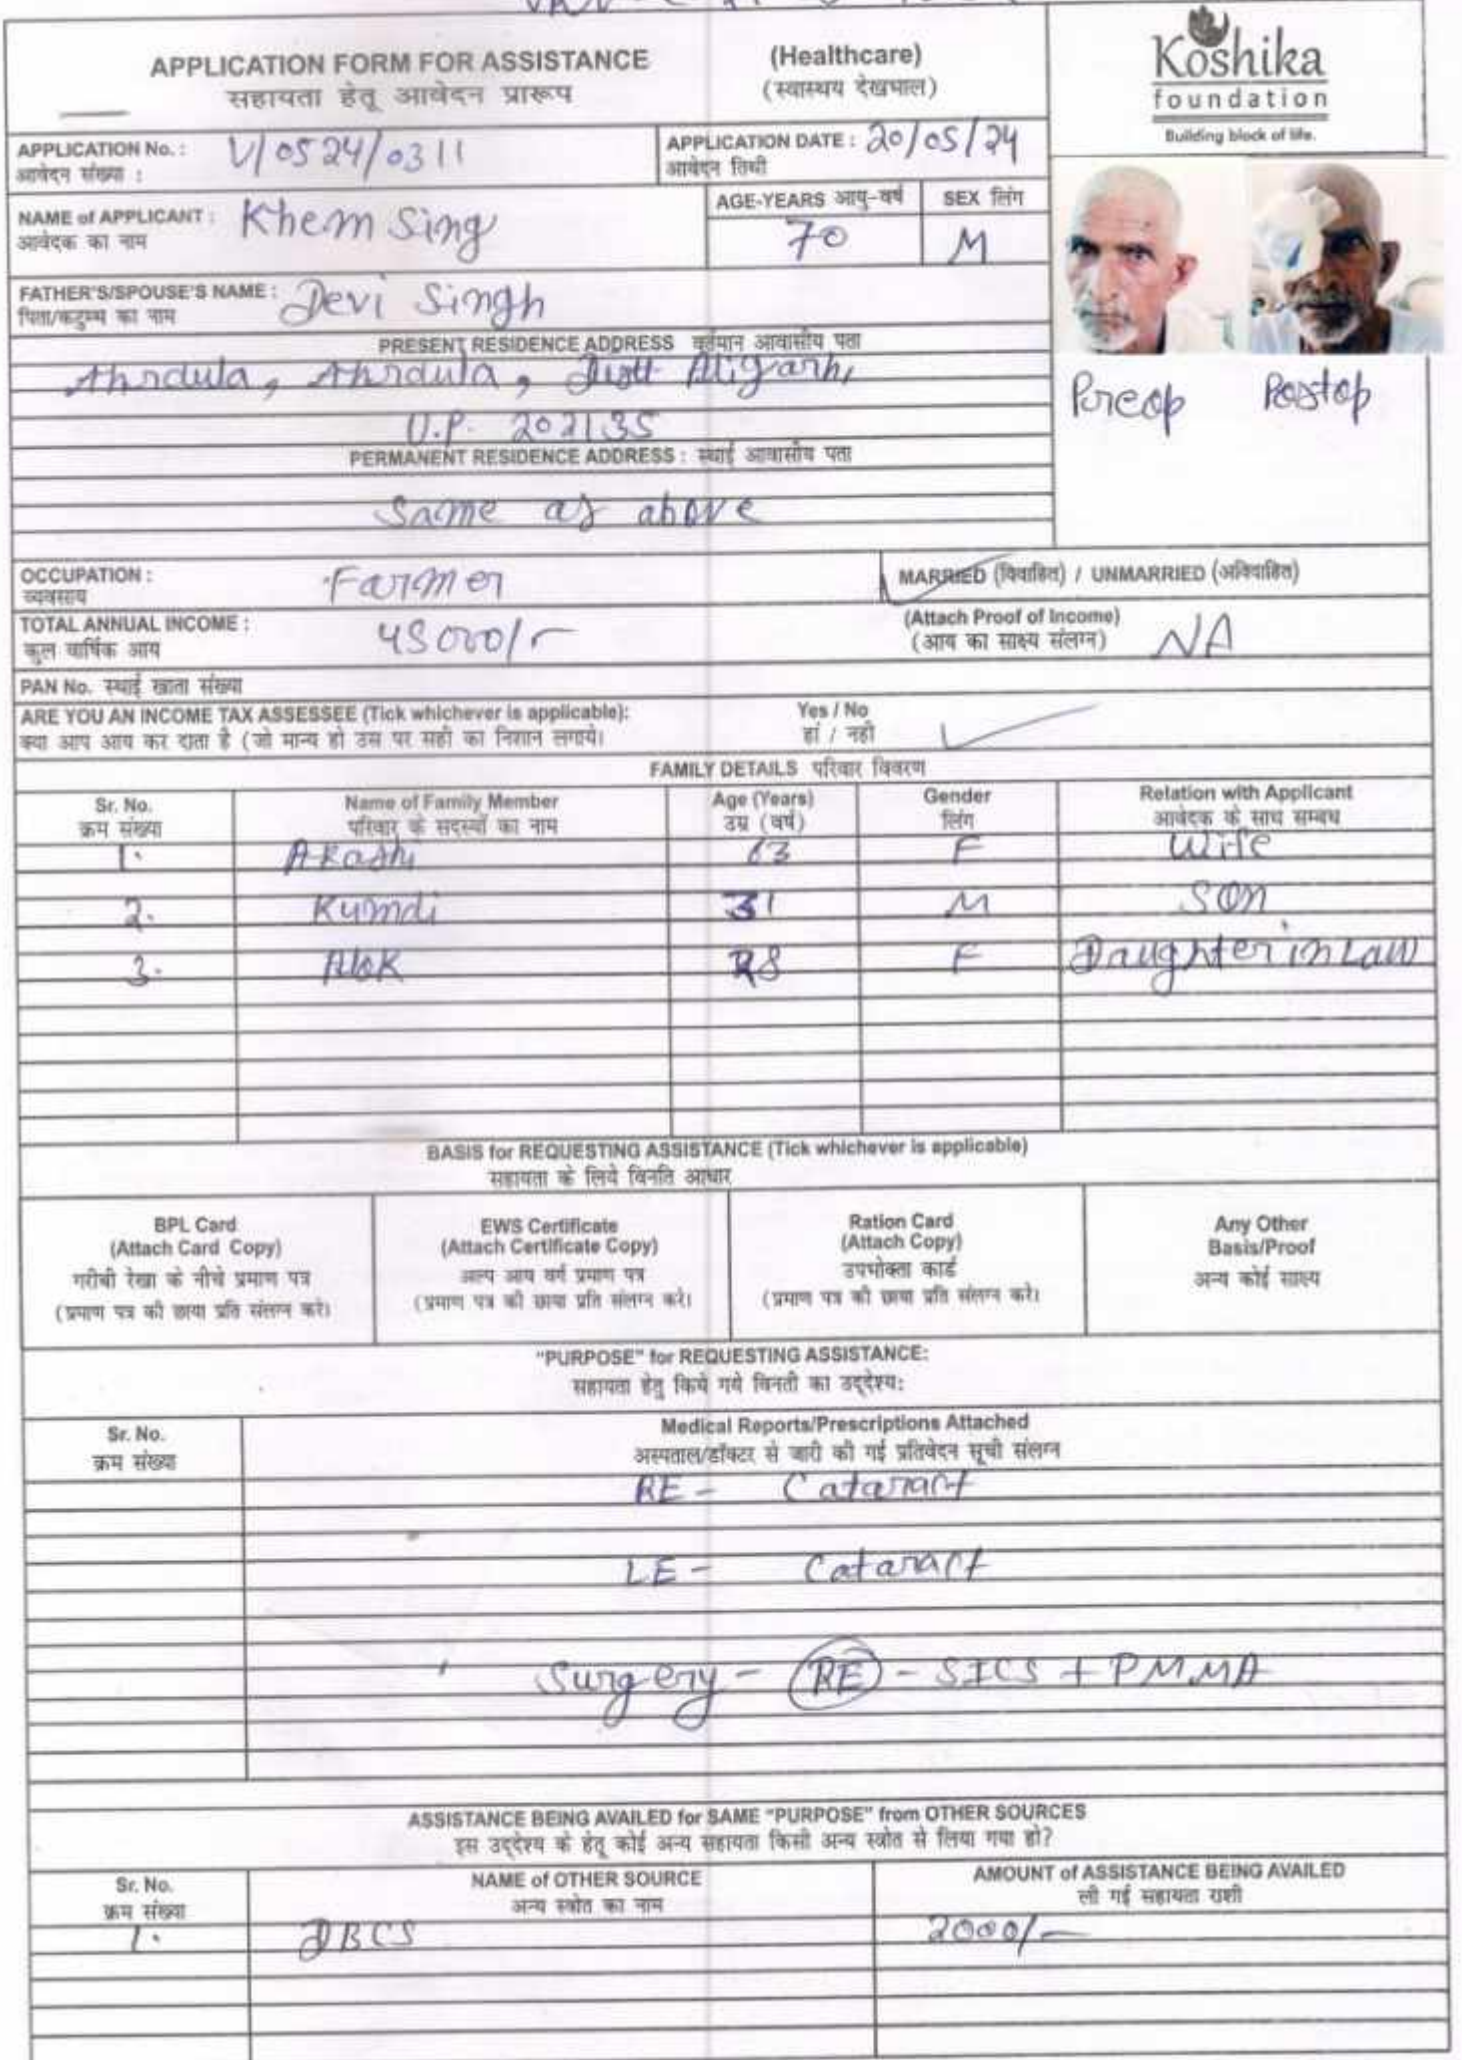 APPLICATION FORM FOR ASSISTANCE
सहायता हेतू आवेदन प्रारूप
(Healthcare)
(स्वास्थय देखभाल)
Koshika
foundation
Building block of life.
APPLICATION No. : V/0524/0311
आवेदन संख्या :
APPLICATION DATE : 20/05/24
आवेदन तिथी
NAME of APPLICANT : Khem Sing
आवेदक का नाम
AGE-YEARS आयु-वर्ष
70
SEX लिंग
M
FATHER'S/SPOUSE'S NAME : Devi Singh
पिता/कटुम्ब का नाम
PRESENT RESIDENCE ADDRESS वर्तमान आवासीय पता
Aligarh,
U.P. 202135
Preop Postop
PERMANENT RESIDENCE ADDRESS : स्थाई आवासीय पता
Same as above
OCCUPATION : Farmer
व्यवसाय
MARRIED (विवाहित) / UNMARRIED (अविवाहित)
TOTAL ANNUAL INCOME : 45000/-
कुल वार्षिक आय
(Attach Proof of Income) NA
(आय का साक्ष्य संलग्न)
PAN No. स्थाई खाता संख्या
ARE YOU AN INCOME TAX ASSESSEE (Tick whichever is applicable): Yes / No
क्या आप आय कर दाता है (जो मान्य हो उस पर सही का निशान लगाये। हां / नही
FAMILY DETAILS परिवार विवरण
Sr. No. Name of Family Member Age (Years) Gender Relation with Applicant
क्रम संख्या परिवार के सदस्यों का नाम उम्र (वर्ष) लिंग आवेदक के साथ सम्बध
1. 63 F Wife
2. Kumdi 31 M Son
3. Alok 28 F Daughter in Law
BASIS for REQUESTING ASSISTANCE (Tick whichever is applicable)
सहायता के लिये विनति आधार
BPL Card
(Attach Card Copy)
गरीबी रेखा के नीचे प्रमाण पत्र
(प्रमाण पत्र की छाया प्रति संलग्न करे।
EWS Certificate
(Attach Certificate Copy)
अल्प आय वर्ग प्रमाण पत्र
(प्रमाण पत्र की छाया प्रति संलग्न करे।
Ration Card
(Attach Copy)
उपभोक्ता कार्ड
(प्रमाण पत्र की छाया प्रति संलग्न करे।
Any Other
Basis/Proof
अन्य कोई साक्ष्य
"PURPOSE" for REQUESTING ASSISTANCE:
सहायता हेतु किये गये विनती का उद्देश्य:
Sr. No. Medical Reports/Prescriptions Attached
क्रम संख्या अस्पताल/डॉक्टर से जारी की गई प्रतिवेदन सूची संलग्न
RE - Cataract
LE - Cataract
Surgery - RE - SICS + PMMA
ASSISTANCE BEING AVAILED for SAME "PURPOSE" from OTHER SOURCES
इस उद्देश्य के हेतू कोई अन्य सहायता किसी अन्य स्त्रोत से लिया गया हो?
Sr. No. NAME of OTHER SOURCE AMOUNT of ASSISTANCE BEING AVAILED
क्रम संख्या अन्य स्त्रोत का नाम ली गई सहायता राशी
1. DBCS 2000/-